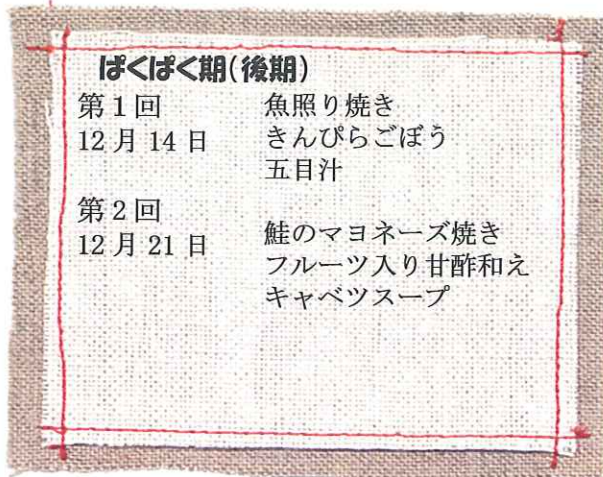 ぱくぱく期(後期)
第1回 魚照り焼き
12月14日 きんぴらごぼう
五目汁
第2回
12月21日 鮭のマヨネーズ焼き
フルーツ入り甘酢和え
キャベツスープ